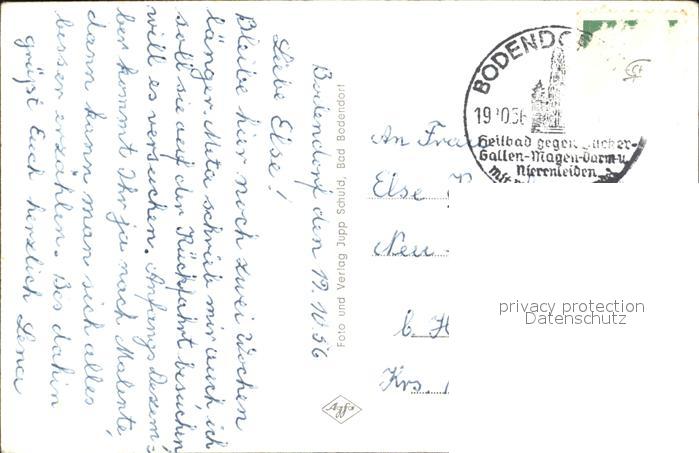 Bodendorf den 19.10.56
Liebe Else!
Bleibe hier noch zwei Wochen
länger. Meta schrieb mir auch, ich
soll sie auf der Rückfahrt besuchen,
will es versuchen. Anfangs Dezem=
ber kommt Ihr ja nach Malente,
dann kann man sich alles
besser erzählen. Bis dahin
grüßt Euch herzlich Lena
Foto und Verlag Jupp Schuld, Bad Bodendorf
Agfa
BODENDO
19.10.56
Heilbad gegen Zucker-
Gallen-Magen-Darm-u.
Nierenleiden
An Frau
Else
Neu-
b. H
Krs.
privacy protection
Datenschutz